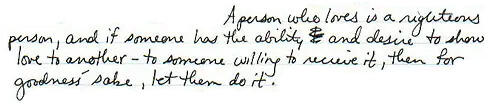 A person who loves is a righteous
person, and if someone has the ability and desire to show
love to another - to someone willing to recieve it, then for
goodness' sake, let them do it.